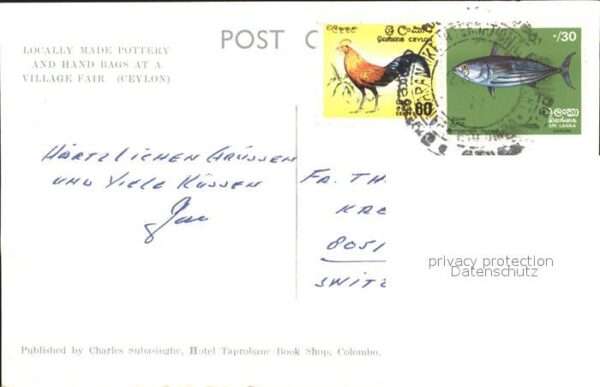 LOCALLY MADE POTTERY
AND HAND BAGS AT A
VILLAGE FAIR (CEYLON)
POST C
ශ්‍රී ලංකා
CEYLON
60
·/30
ශ්‍රී ලංකා
இலங்கை
SRI LANKA
HÄRTZLICHEN GRÜSSEN
UND VIELE KÜSSEN
FA. TH
8051
SWITZ
privacy protection
Datenschutz
Published by Charles Subasinghe, Hotel Taprobane Book Shop, Colombo.